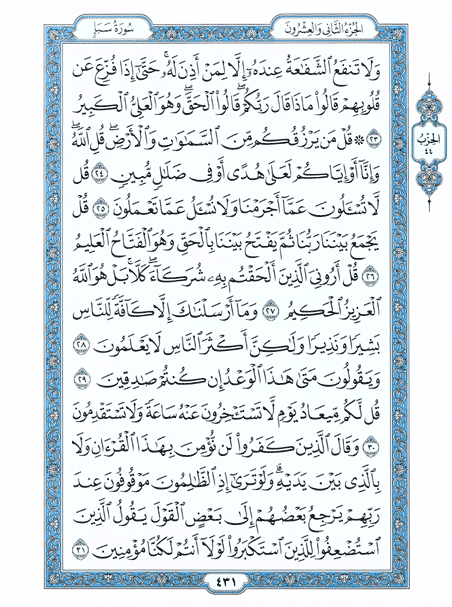 الجزء الثاني والعشرون
سورة سبإ
ولا تنفع الشفعة عنده إلا لمن أذن له حتى إذا فزع عن
قلوبهم قالوا ماذا قال ربكم قالوا الحق وهو العلي الكبير
٢٣ ۞ قل من يرزقكم من السموت والأرض قل الله
وإنا أو إياكم لعلى هدى أو في ضلل مبين ٢٤ قل
لا تسءلون عما أجرمنا ولا نسءل عما تعملون ٢٥ قل
يجمع بيننا ربنا ثم يفتح بيننا بالحق وهو الفتاح العليم
٢٦ قل أروني الذين ألحقتم به شركاء كلا بل هو الله
العزيز الحكيم ٢٧ وما أرسلنك إلا كافة للناس
بشيرا ونذيرا ولكن أكثر الناس لا يعلمون ٢٨
ويقولون متى هذا الوعد إن كنتم صدقين ٢٩
قل لكم ميعاد يوم لا تستءخرون عنه ساعة ولا تستقدمون
٣٠ وقال الذين كفروا لن نؤمن بهذا القرءان ولا
بالذي بين يديه ولو ترى إذ الظلمون موقوفون عند
ربهم يرجع بعضهم إلى بعض القول يقول الذين
استضعفوا للذين استكبروا لولا أنتم لكنا مؤمنين ٣١
الحزب
٤٤
٤٣١